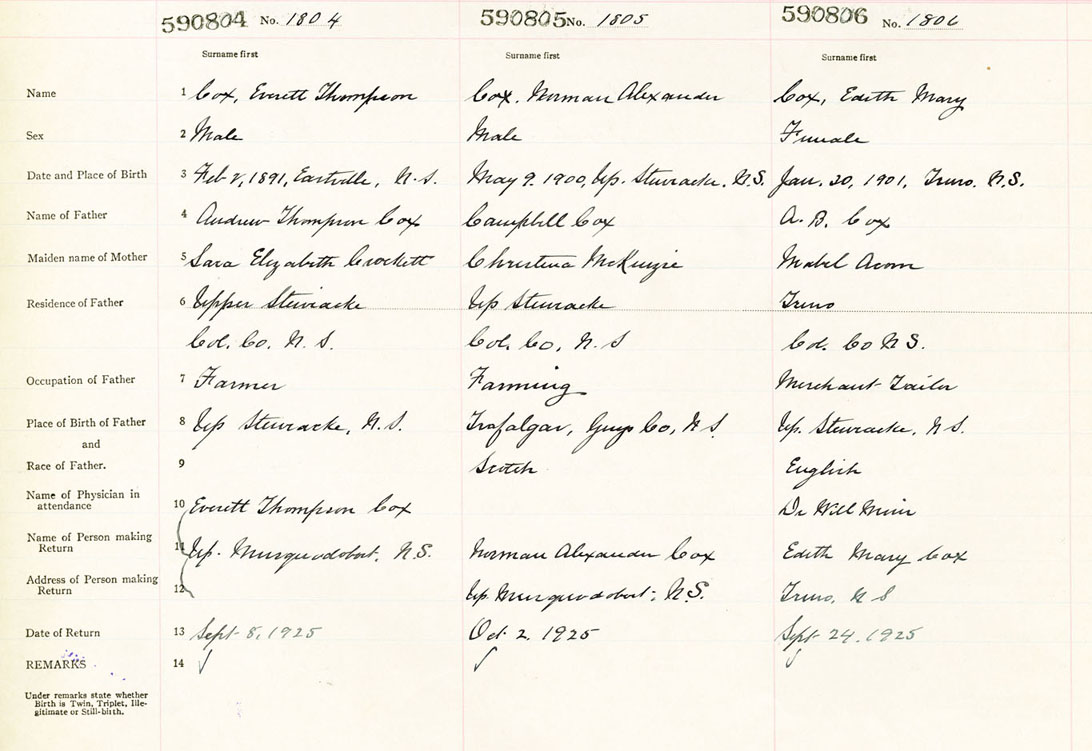 590804 No. 1804 590805 No. 1805 590806 No. 1806
Surname first Surname first Surname first
Name 1 Cox, Everett Thompson Cox, Norman Alexander Cox, Edith Mary
Sex 2 Male Male Female
Date and Place of Birth 3 Feb 1891, Eastville, N.S. May 9. 1900, Up. Stewiacke, N.S. Jan. 20, 1901, Truro, N.S.
Name of Father 4 Andrew Thompson Cox Campbell Cox A. B. Cox
Maiden name of Mother 5 Sara Elizabeth Crockett Christena McKenzie Mabel
Residence of Father 6 Upper Stewiacke Up Stewiacke Truro
Col. Co, N. S. Col. Co, N. S Col. Co N S.
Occupation of Father 7 Farmer Farming Merchant Tailor
Place of Birth of Father 8 Up Stewiacke, N.S. Trafalgar, Guys Co, N S. Up. Stewiacke, N S.
and
Race of Father. 9 Scotch English
Name of Physician in
attendance 10 Everett Thompson Cox Dr Will Muir
Name of Person making
Return 11 Up. Musquodoboit, N.S. Norman Alexander Cox Edith Mary Cox
Address of Person making
Return 12 Up Musquodoboit, N.S. Truro, N S
Date of Return 13 Sept 8, 1925 Oct 2. 1925 Sept 24. 1925
REMARKS 14
Under remarks state whether
Birth is Twin, Triplet, Ille-
gitimate or Still-birth.